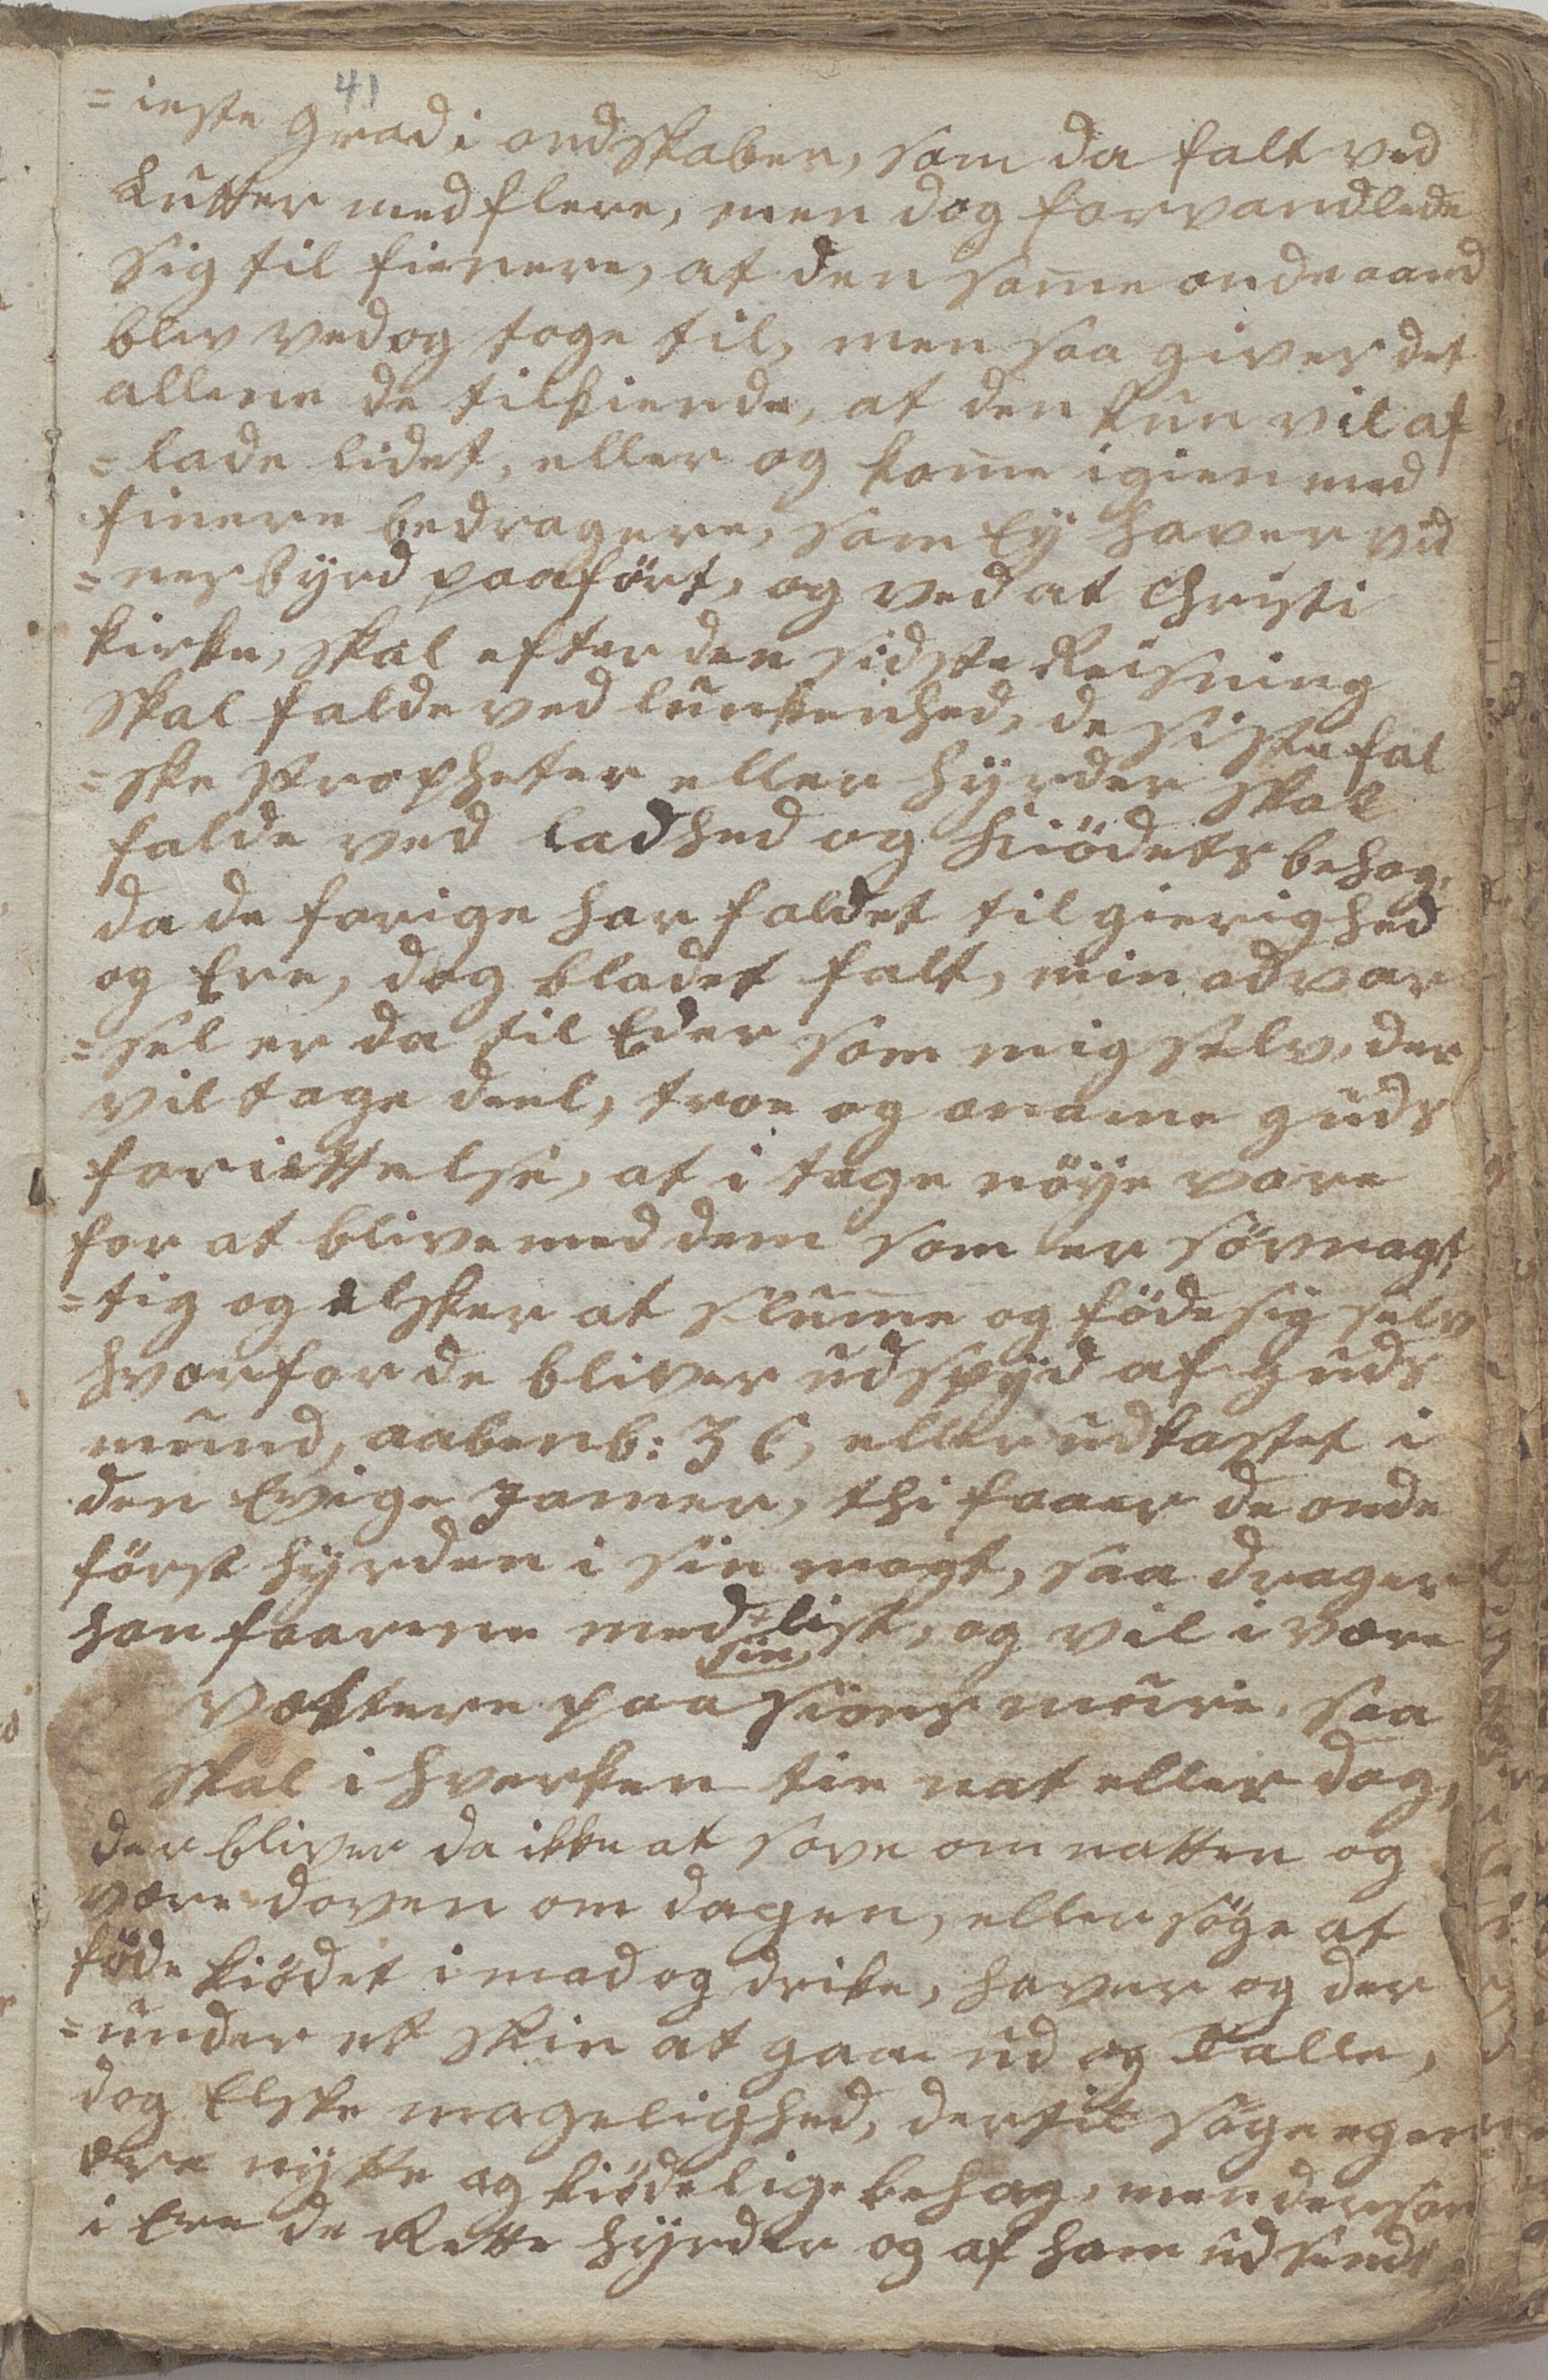 41
=ieste Grad i ondskaben, som da falt ved
Lutter med flere, men dog forvandlede
sig til finere, at den same onde aand
blev ved og toge til, men saa gives det
allene de tilkiende, at den kun vil af
=lade lidet, eller og kome igien med
finere bedragere, som Ey haver vid
=nesbyrd paaført, og ved at Christi
kirke, skal efter den sidste Reisning
skal falde ved lunkenhed, de siste fal
=ske Propheter eller hyrder skal
falde ved ladhed og kiödets behag,
da de forige har faldet til gierighed
og Ere, dog bladet falt, min advar
=sel er da til Eder som mig selv, der
vil tage deel, troe og aname guds
foriettelse, at i tage nöye vare
for at blive med dem som er sövnagt
=tig og elsker at slume og föde sig selv
hvorfor de bliver udspyd af guds
mund, aabenb: 3 C, eller udkastet i
den Evige Jamer, thi faaer de onde
först hyrden i sin magt, saa drager
han faarene med + list, og vil i være
sin
vættere paa Sions mure, saa
skal i hverken tie nat eller dag,
der bliver da ikke at sove om natten og
være doven om dagen, eller söge at
föde kiödet i mad og drike, haver og der
=under et skin at gaae ud og Talle,
dog Elske magelighed, dertil söge egen
ære nytte og kiödelige behag, men dersom
i Ere de Rette hyrder og af ham udsendt